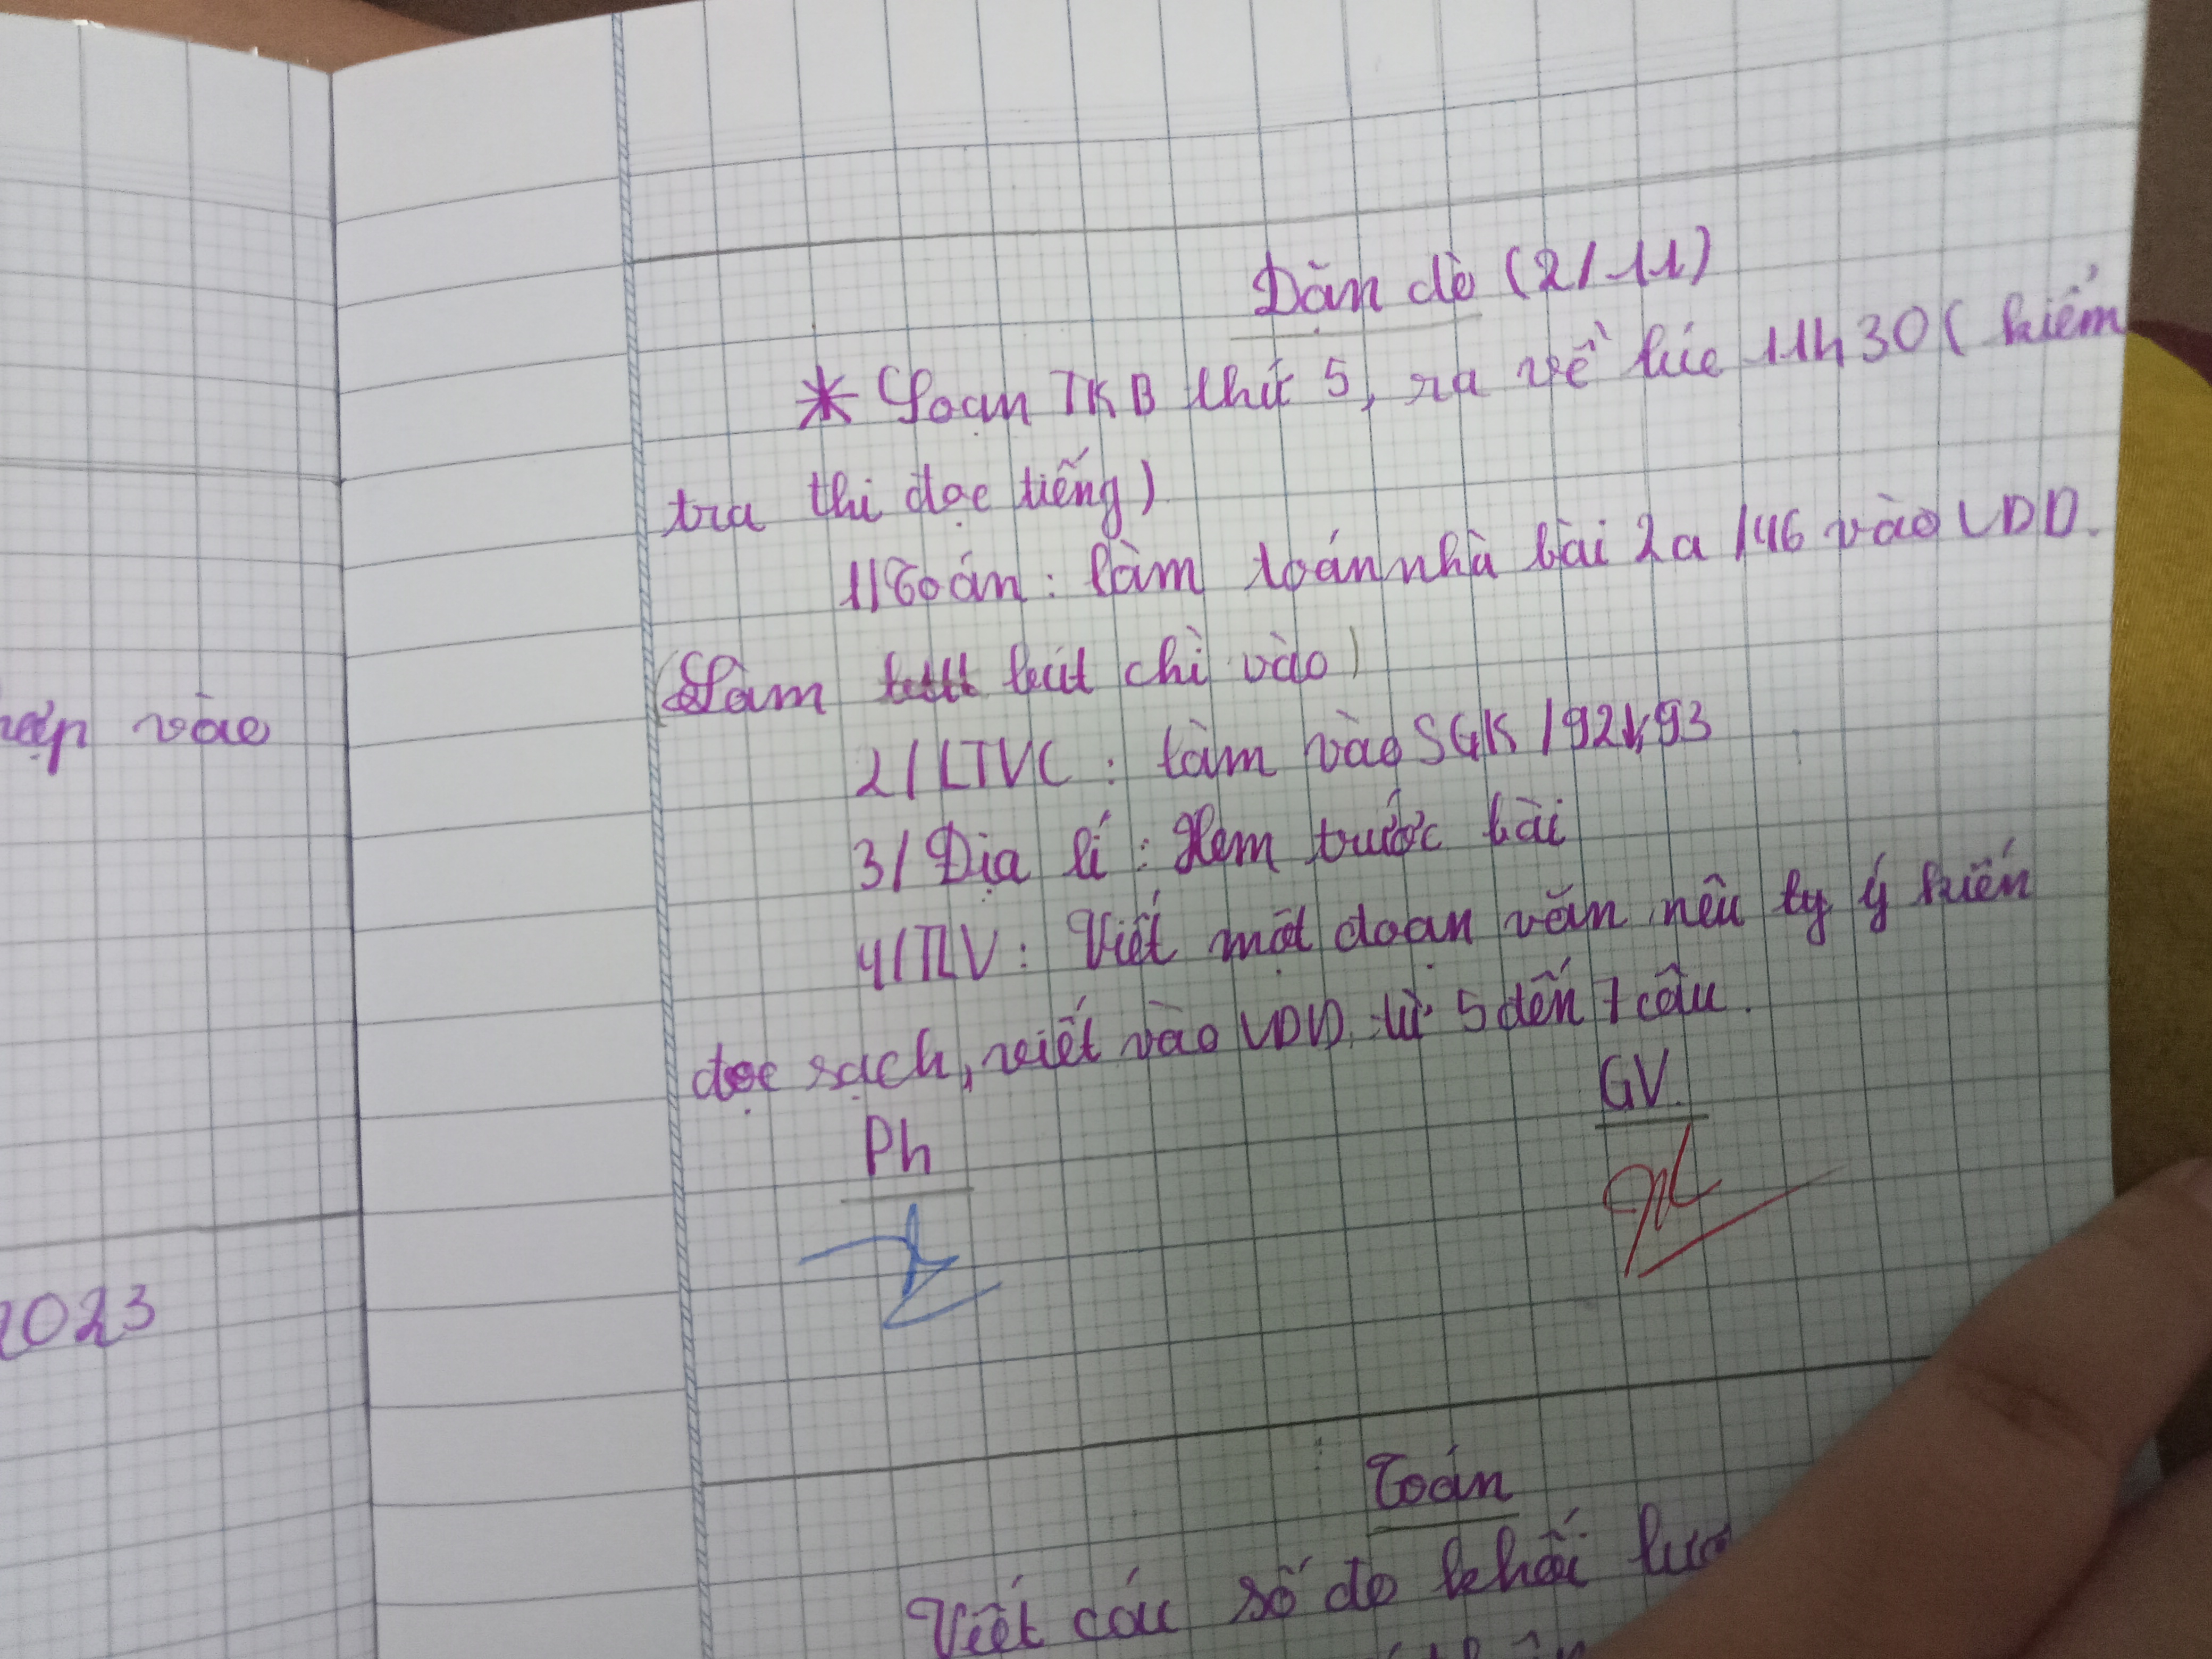 Dặn dò (2/11)
* Soạn TKB thứ 5, ra về lúc 11h30 ( kiểm
tra thi đọc tiếng)
1/Toán: làm toán nhà bài 2a /46 vào VDD.
(Làm bút chì vào)
2/LTVC: làm vào SGK /92,93
3/ Địa lí: Xem trước bài
4/TLV: Viết một đoạn văn nêu lý ý kiến
đọc sạch, viết vào VDD từ 5 đến 7 câu.
Ph
GV.
Toán
Viết các số đo khối lượ
vào
2023